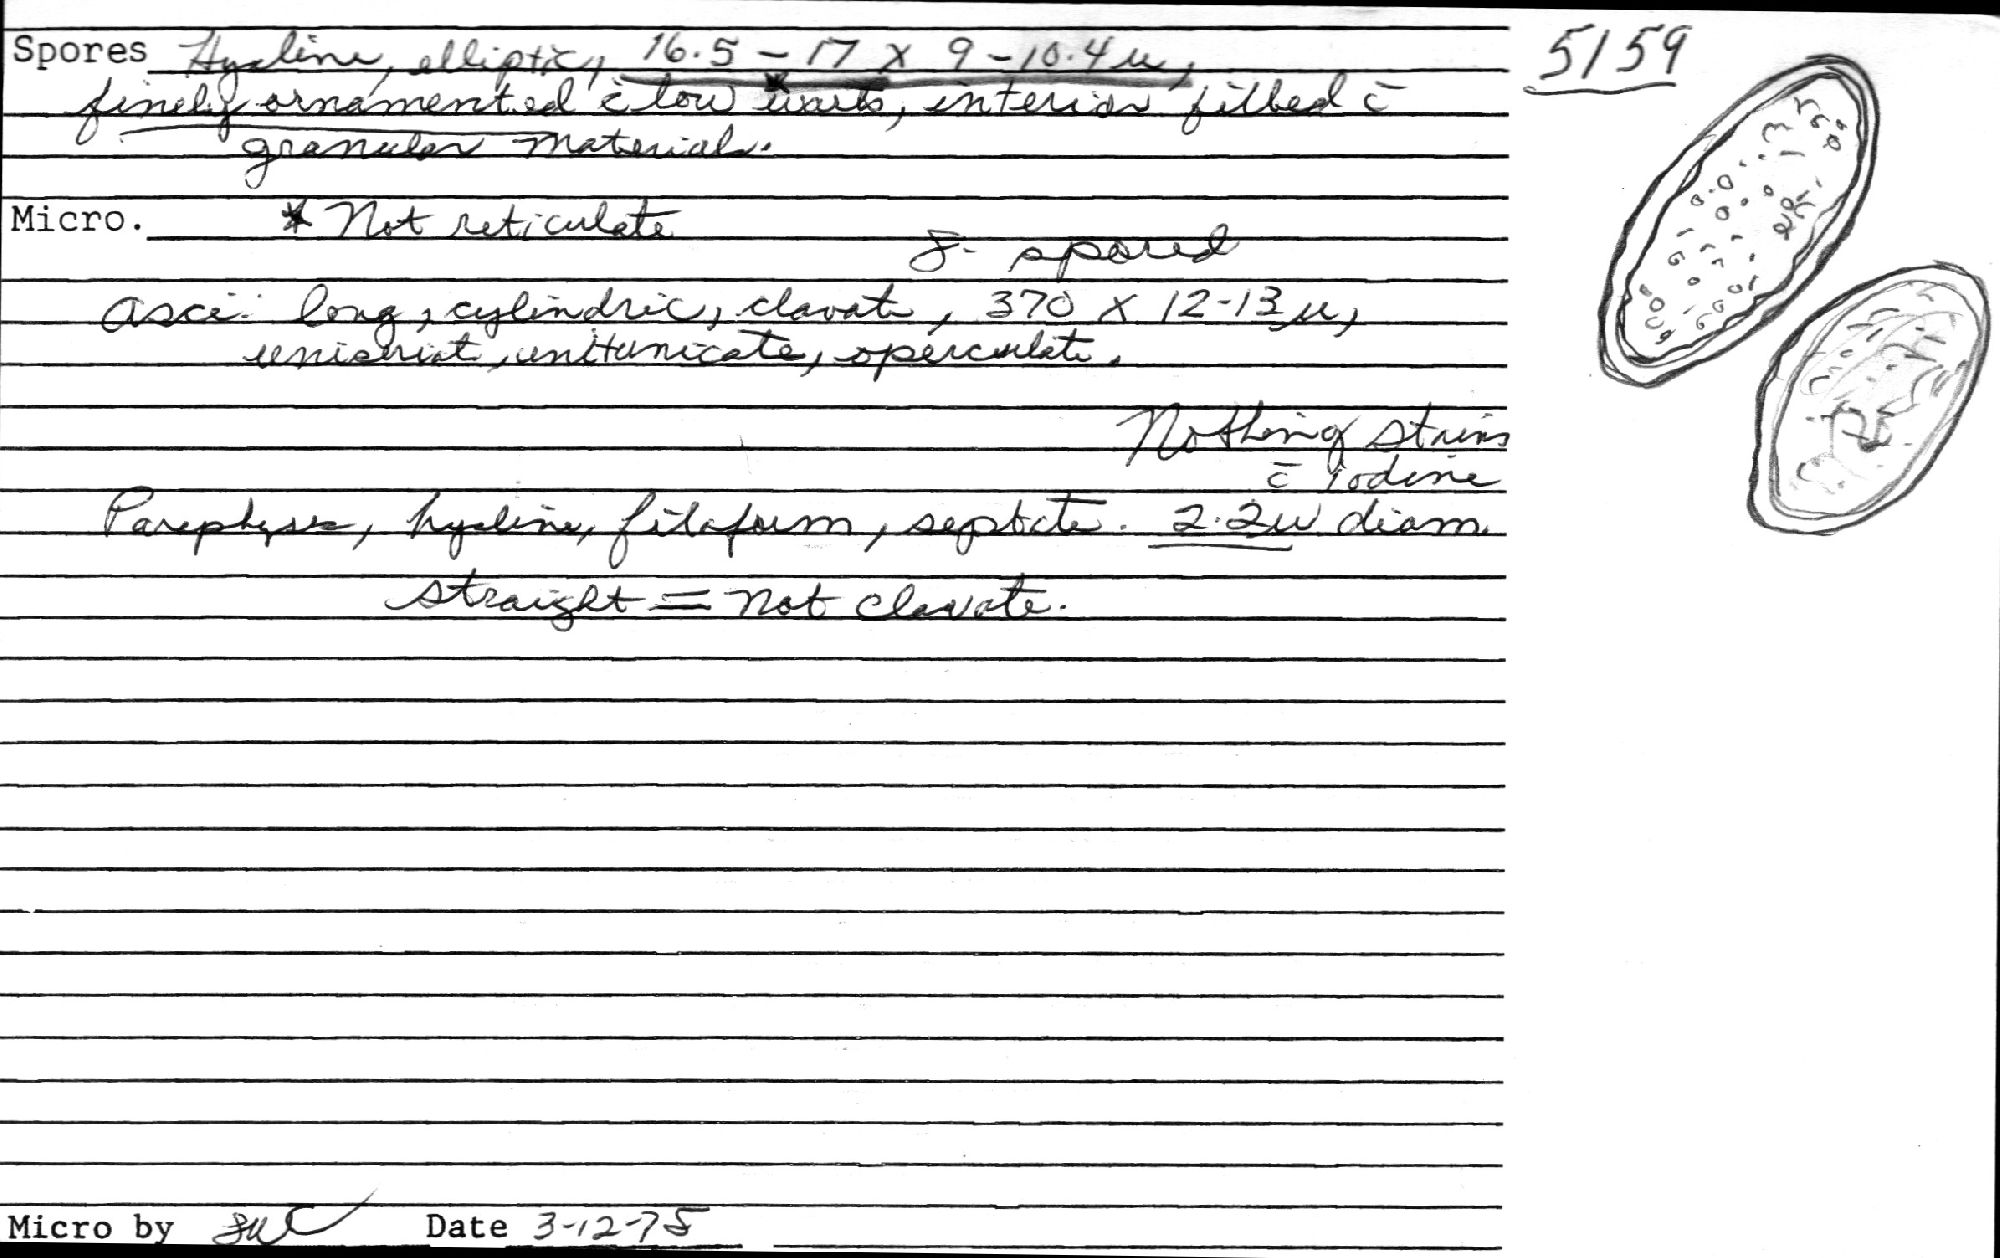 Spores Hyaline, elliptic, 16.5 - 17 x 9 - 10.4 u,
5159
finely ornamented c̄ low * warts, interior filled c̄
granular materials.
Micro. * Not reticulate
8- spored
Asci: long, cylindric, clavate, 370 X 12-13 u,
uniseriat, unitunicate, operculate.
Nothing stains
c̄ iodine
Paraphyses, hyaline, filaform, septate. 2.2u diam.
straight = not clavate.
Micro by Date 3-12-75